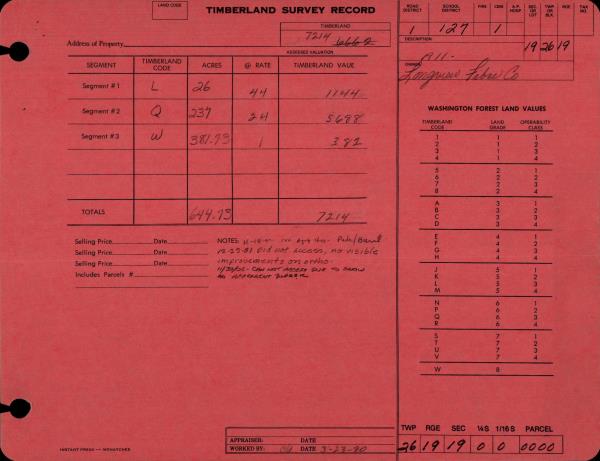 LAND CODE
TIMBERLAND SURVEY RECORD
TIMBERLAND
7214 6662
Address of Property
ASSESSED VALUATION
SEGMENT TIMBERLAND CODE ACRES @ RATE TIMBERLAND VAUE
Segment #1 L 26 44 1144
Segment #2 Q 237 24 5688
Segment #3 W 381.73 1 382
TOTALS 644.73 7214
Selling Price Date
Selling Price Date
Selling Price Date
Selling Price Date
Includes Parcels #
NOTES: 11-18-
12-29-81 Did not access, no visible
improvements on ortho.
ROAD DISTRICT SCHOOL DISTRICT FIRE CEM. A.P. HOSP. SEC. OR LOT TWP. OR BLK. RGE. TAX NO.
1 127 1 19 26 19
DESCRIPTION
All-
OWNER
Longview Fibre Co
WASHINGTON FOREST LAND VALUES
TIMBERLAND CODE LAND GRADE OPERABILITY CLASS
1 1 1
2 1 2
3 1 3
4 1 4
5 2 1
6 2 2
7 2 3
8 2 4
A 3 1
B 3 2
C 3 3
D 3 4
E 4 1
F 4 2
G 4 3
H 4 4
J 5 1
K 5 2
L 5 3
M 5 4
N 6 1
P 6 2
Q 6 3
R 6 4
S 7 1
T 7 2
U 7 3
V 7 4
W 8
TWP RGE SEC ¼S 1/16S PARCEL
26 19 19 0 0 0000
APPRAISER: DATE
WORKED BY: DATE 3-23-90
INSTANT PRESS — WENATCHEE